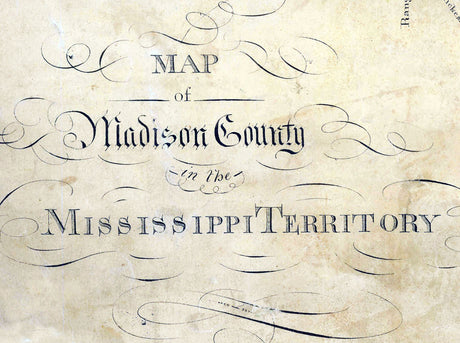 MAP
of
Madison County
in the
MISSISSIPPI TERRITORY